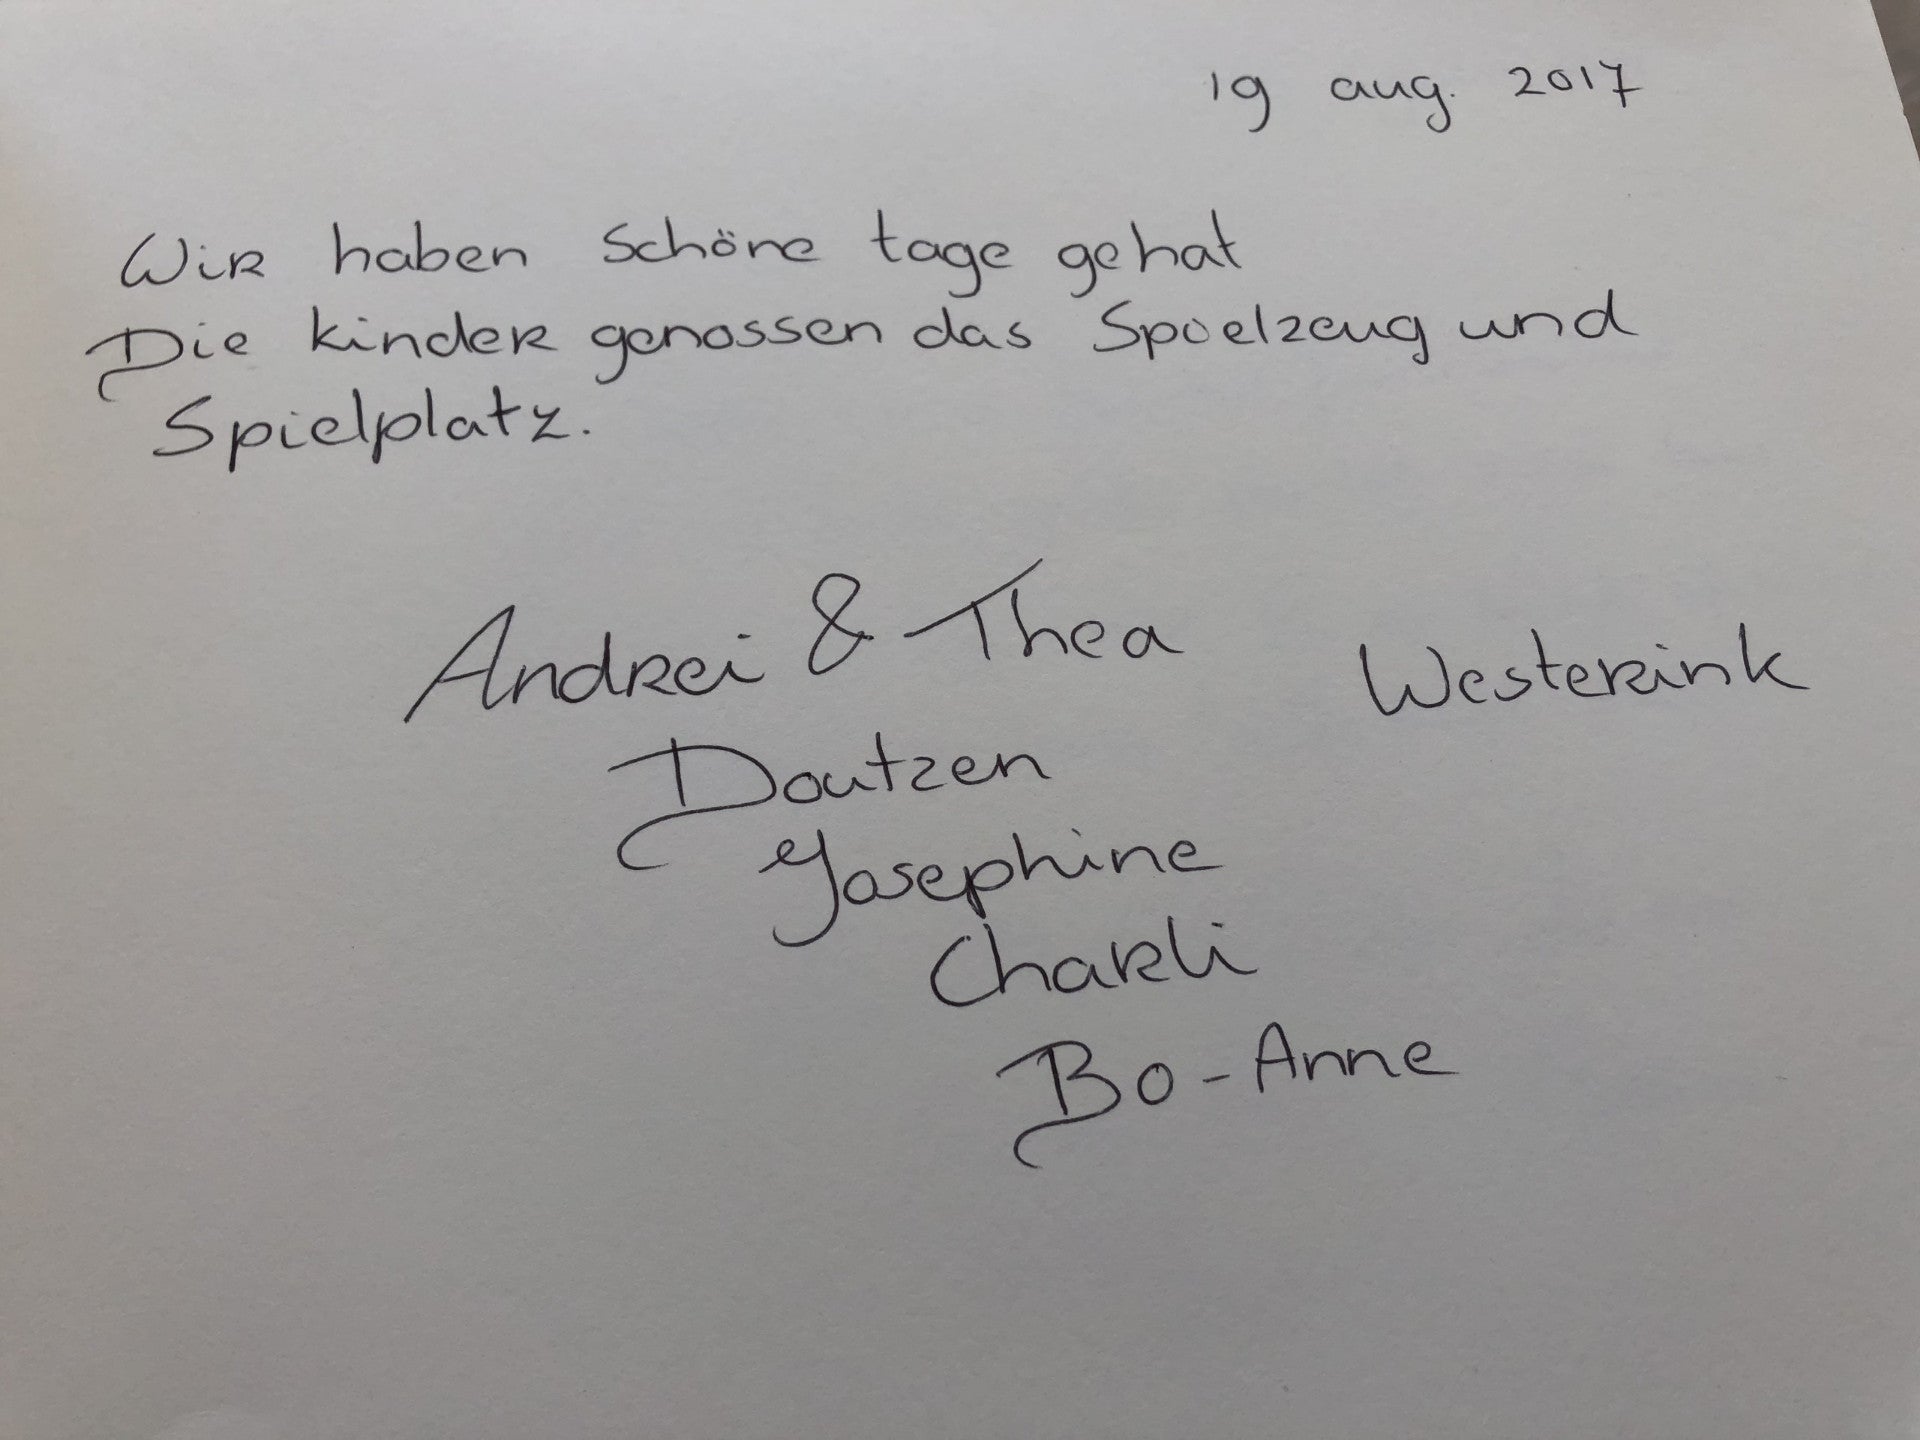 19 aug. 2017
Wir haben Schöne tage gehat
Die kinder genossen das Spoelzeug und
Spielplatz.
Andrei & Thea Westerink
Doutzen
Josephine
Charli
Bo-Anne